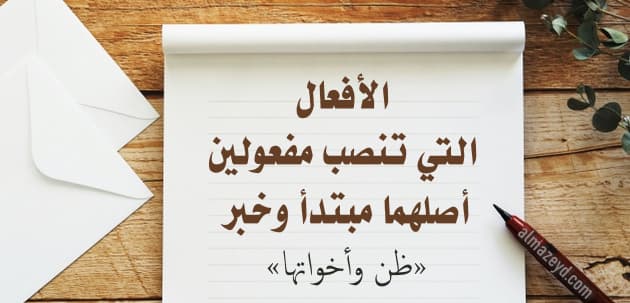 الأفعال
التي تنصب مفعولين
أصلهما مبتدأ وخبر
«ظن وأخواتها»
almazeyd.com